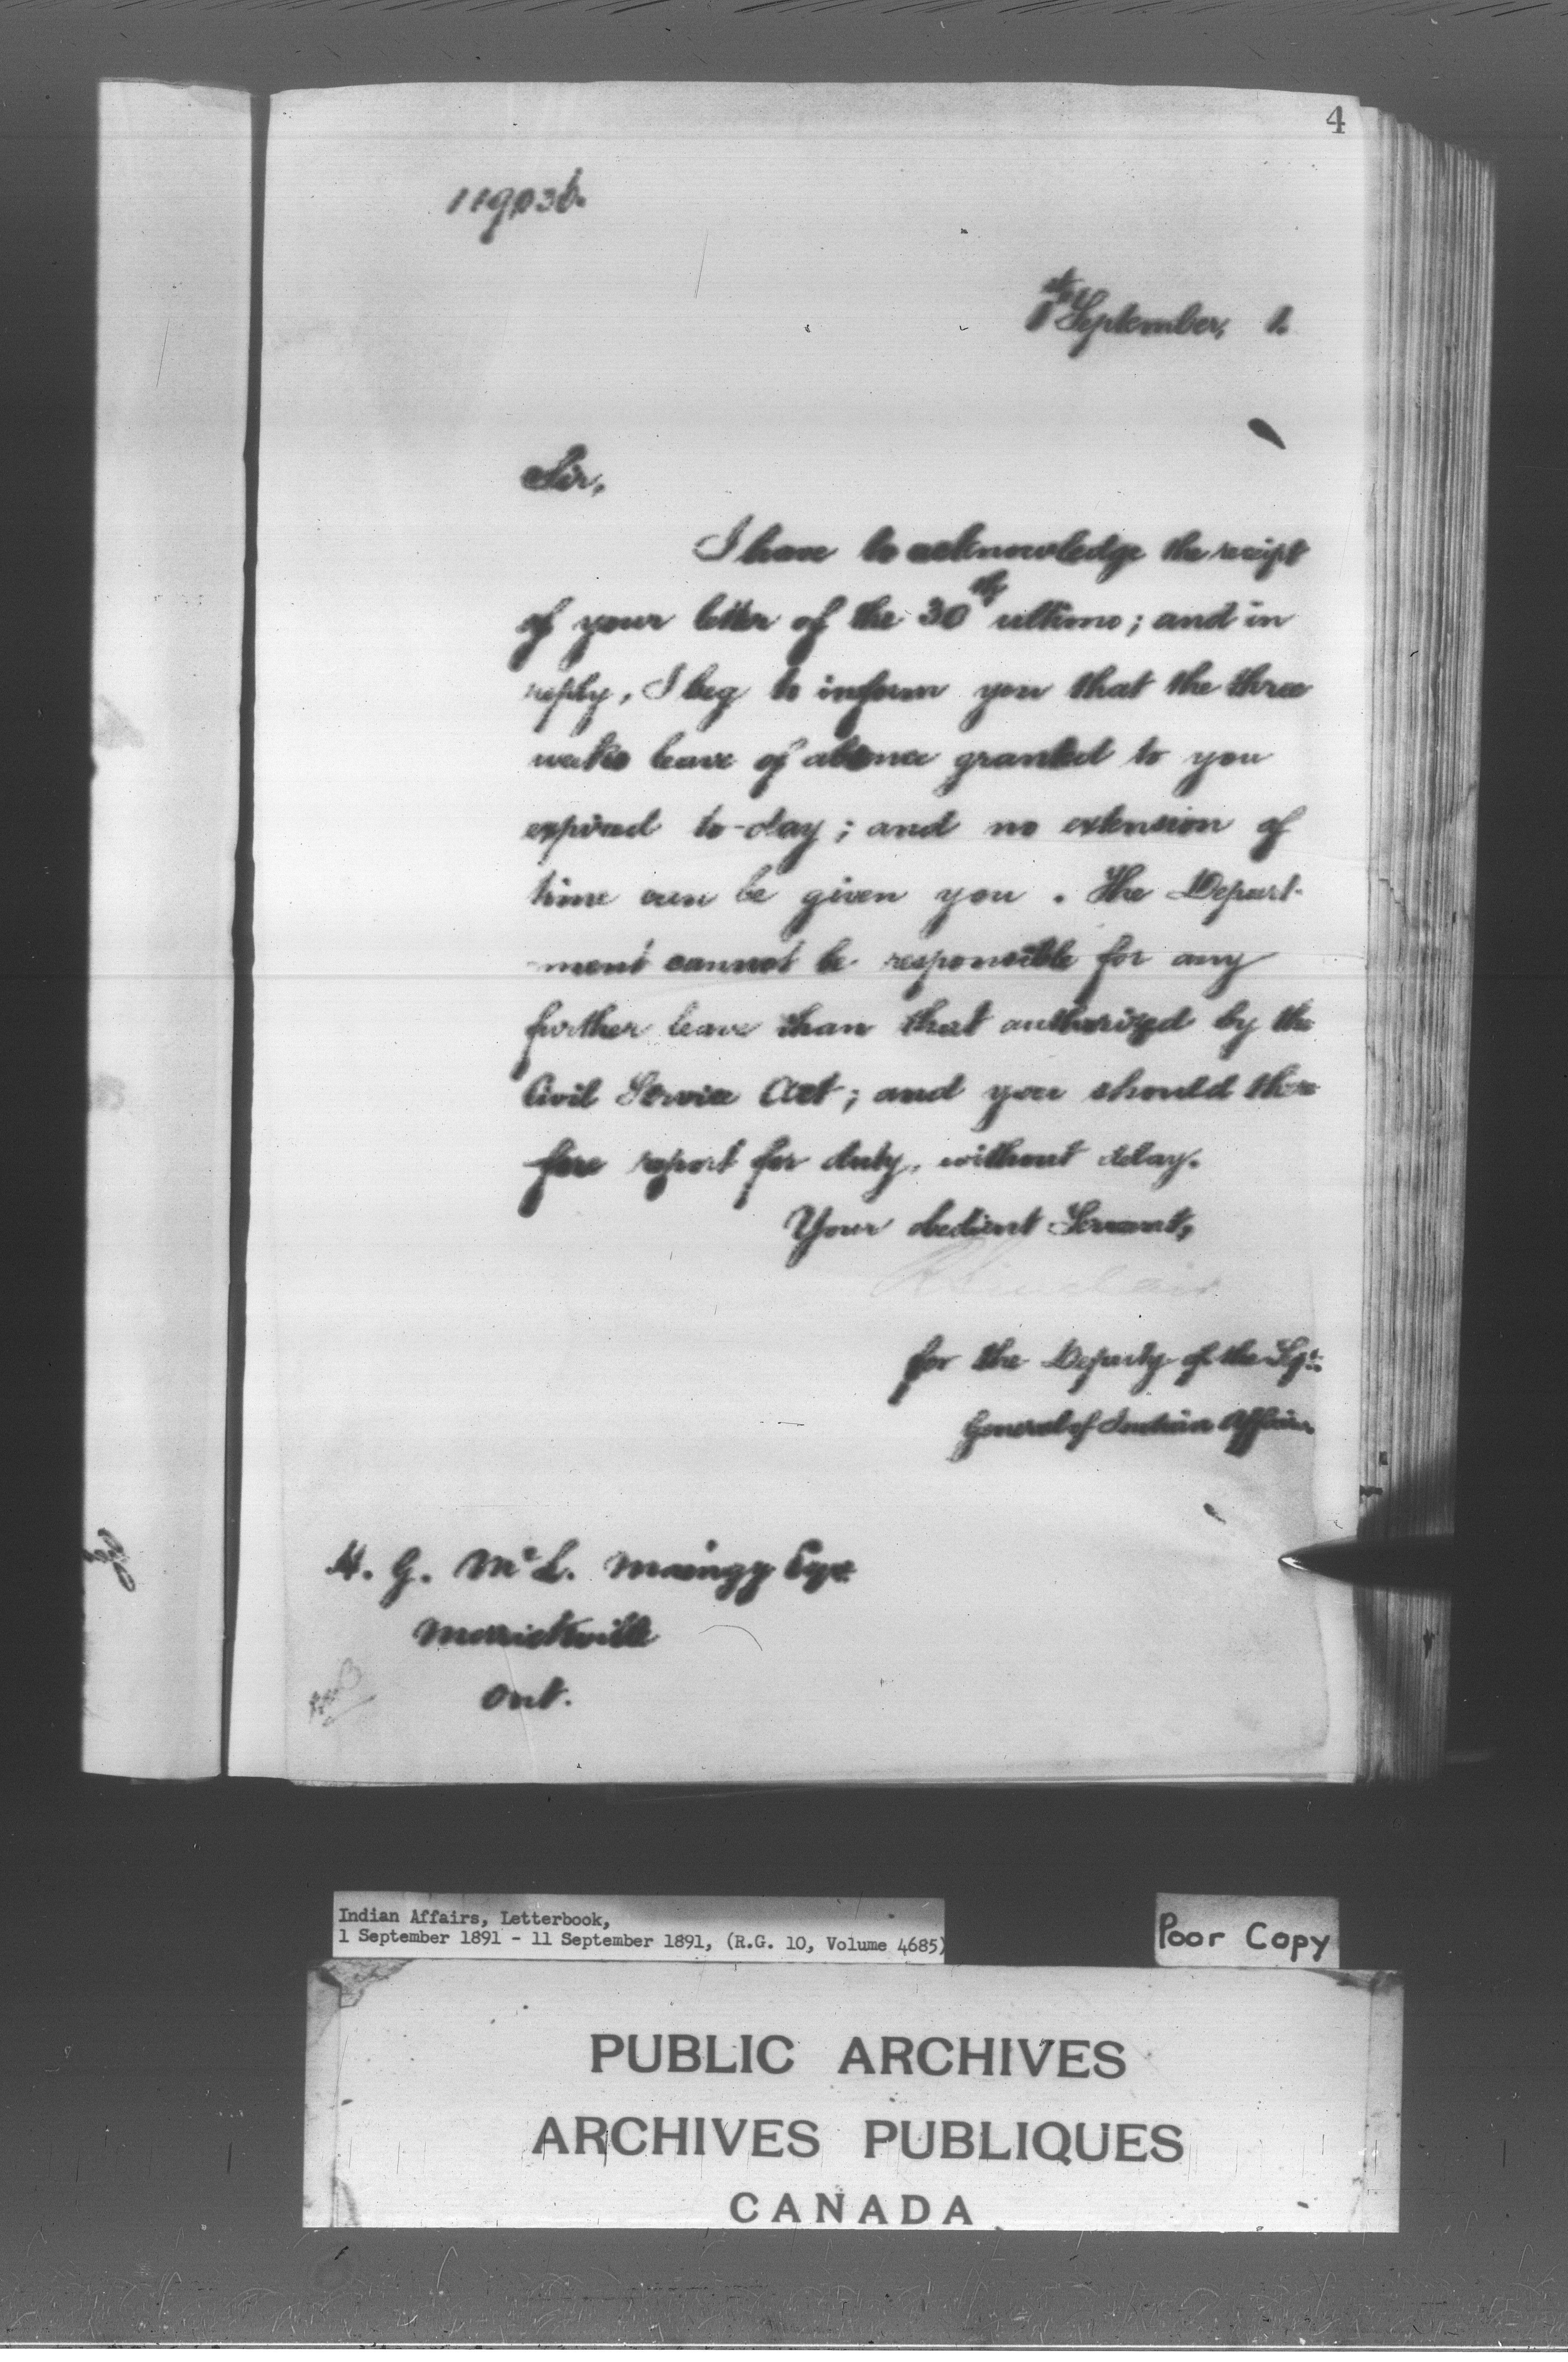 4
119036.
1st September, 1.
Sir,
I have to acknowledge the receipt
of your letter of the 30th ultimo; and in
reply, I beg to inform you that the three
weeks leave of absence granted to you
expired to-day; and no extension of
time can be given you. The Depart-
-ment cannot be responsible for any
further leave than that authorized by the
Civil Service Act; and you should there
fore report for duty, without delay.
Your obedient Servant,
R Sinclair
for the Deputy of the Supt:
General of Indian Affairs
H. G. McL. Maingy Esqr.
Merrickville
Ont.
Indian Affairs, Letterbook,
1 September 1891 - 11 September 1891, (R.G. 10, Volume 4685)
Poor Copy
PUBLIC ARCHIVES
ARCHIVES PUBLIQUES
CANADA